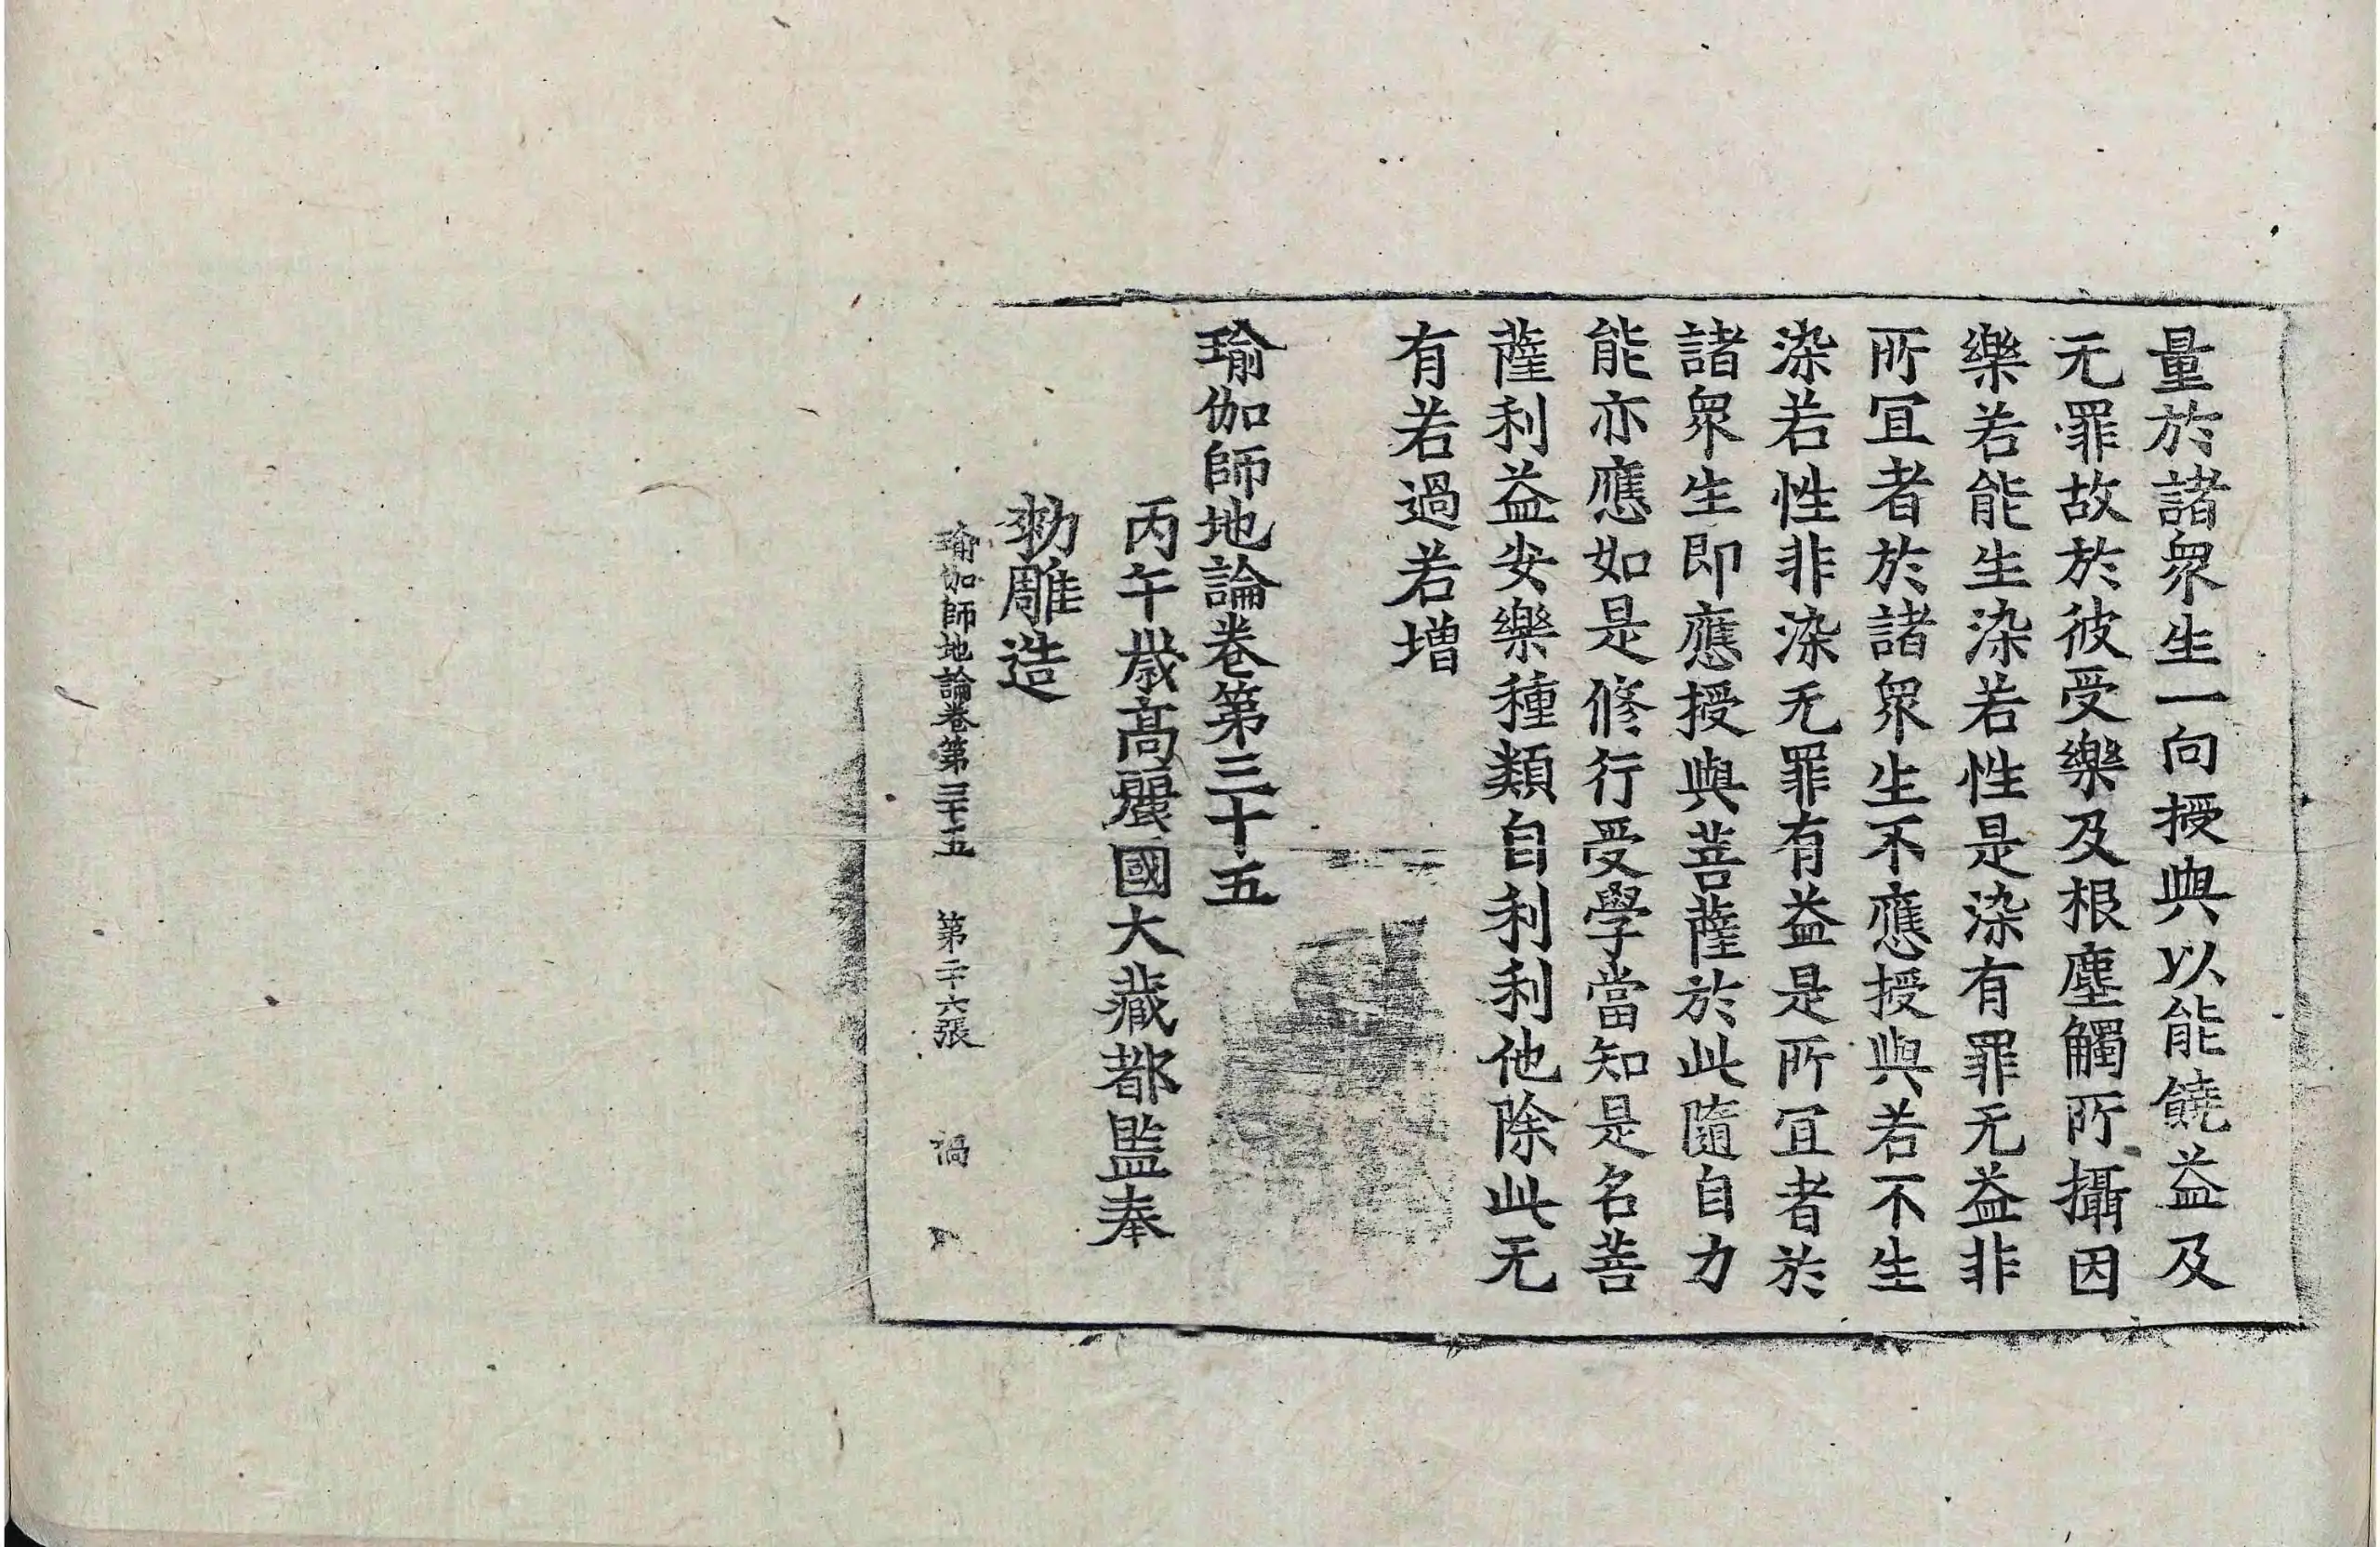 量於諸衆生一向授與以能饒益及
无罪故於彼受樂及根塵觸所攝因
樂若能生染若性是染有罪无益非
所冝者於諸衆生不應授與若不生
染若性非染无罪有益是所冝者於
諸衆生即應授與菩薩於此隨自力
能亦應如是修行受學當知是名菩
薩利益安樂種類自利利他除此无
有若過若增
瑜伽師地論卷第三十五
丙午歲高麗國大藏都監奉
勑雕造
瑜伽師地論卷第三十五 第二十六張 禍